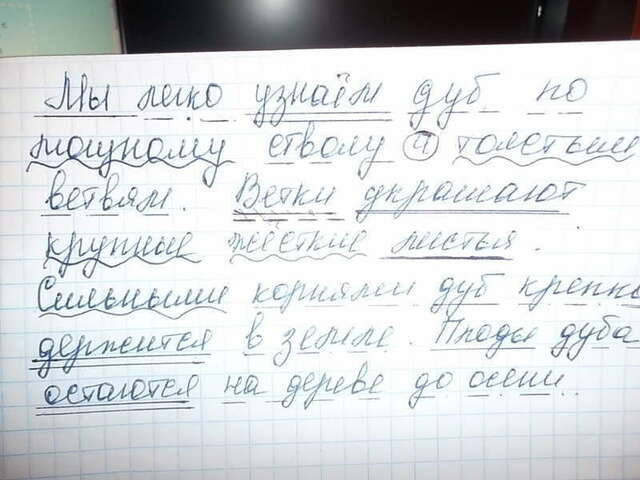 Мы легко узнаём дуб по
мощному стволу и толстым
ветвям. Ветки украшают
крупные жёсткие листья.
Сильными корнями дуб крепко
держится в земле. Плоды дуба
остаются на дереве до осени.